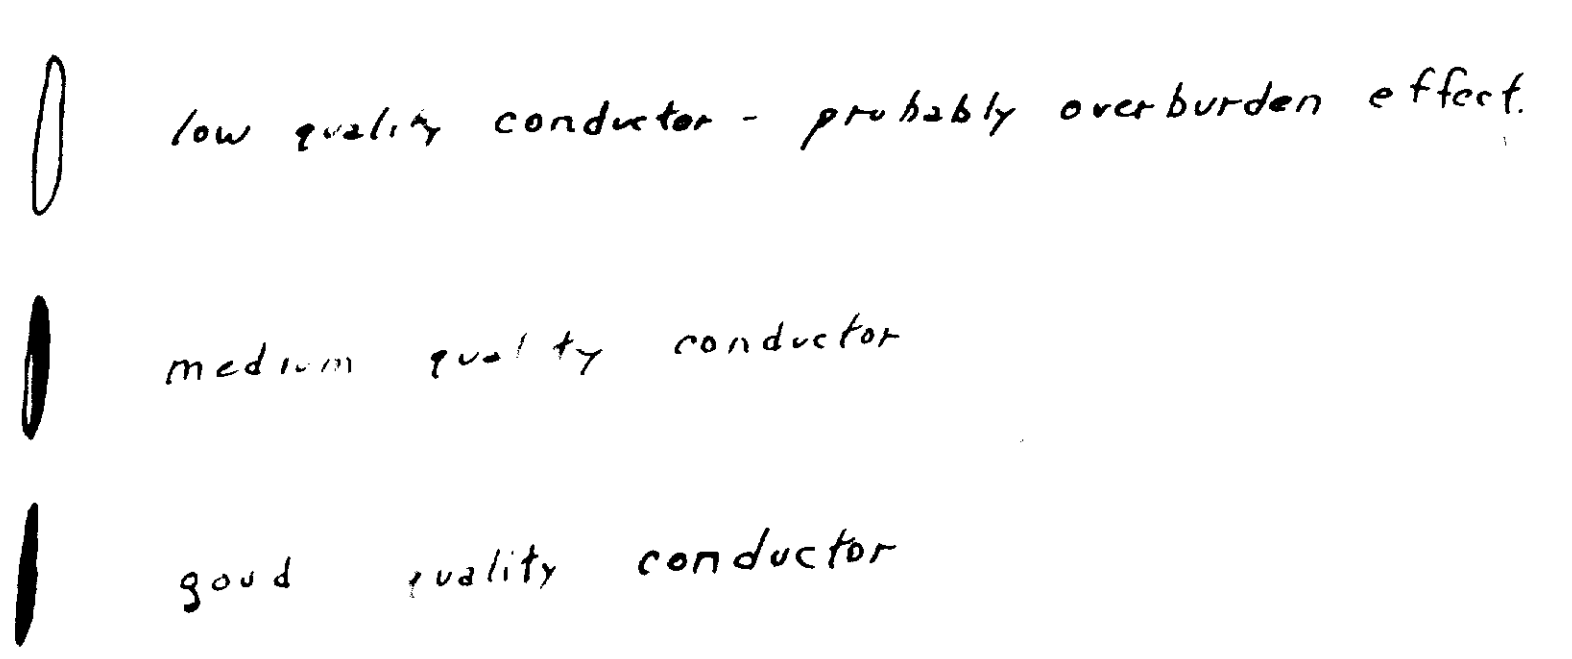 low quality conductor - probably overburden effect.
medium quality conductor
good quality conductor